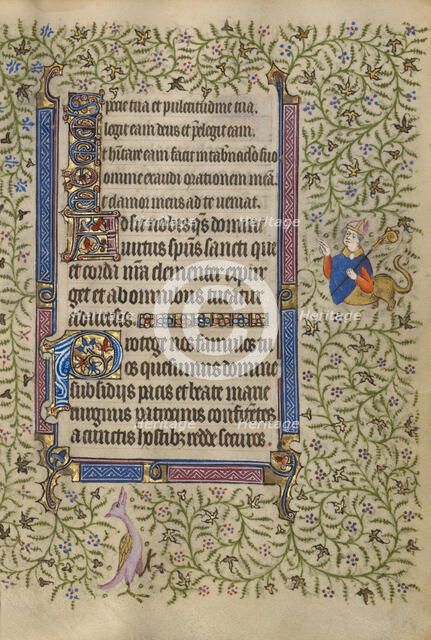 Specie tua et pulcritudine tua.
Elegit eam deus et prelegit eam.
Et hitare eam facit in tabernaclo suo
Domine exaudi orationem meam.
Et clamor meus ad te veniat.
Assit nobis qs domine
virtus spus sancti que
et corda nra clementer expur
get et ab omnibus tueatur
adversis
Protege nos famulos tu
os quesumus domine
subsidiis pacis et beate marie
virginis patrociniis confidetes
a cunctis hostib redde securos.
Heritage
Heritage
Heritage
Heritage